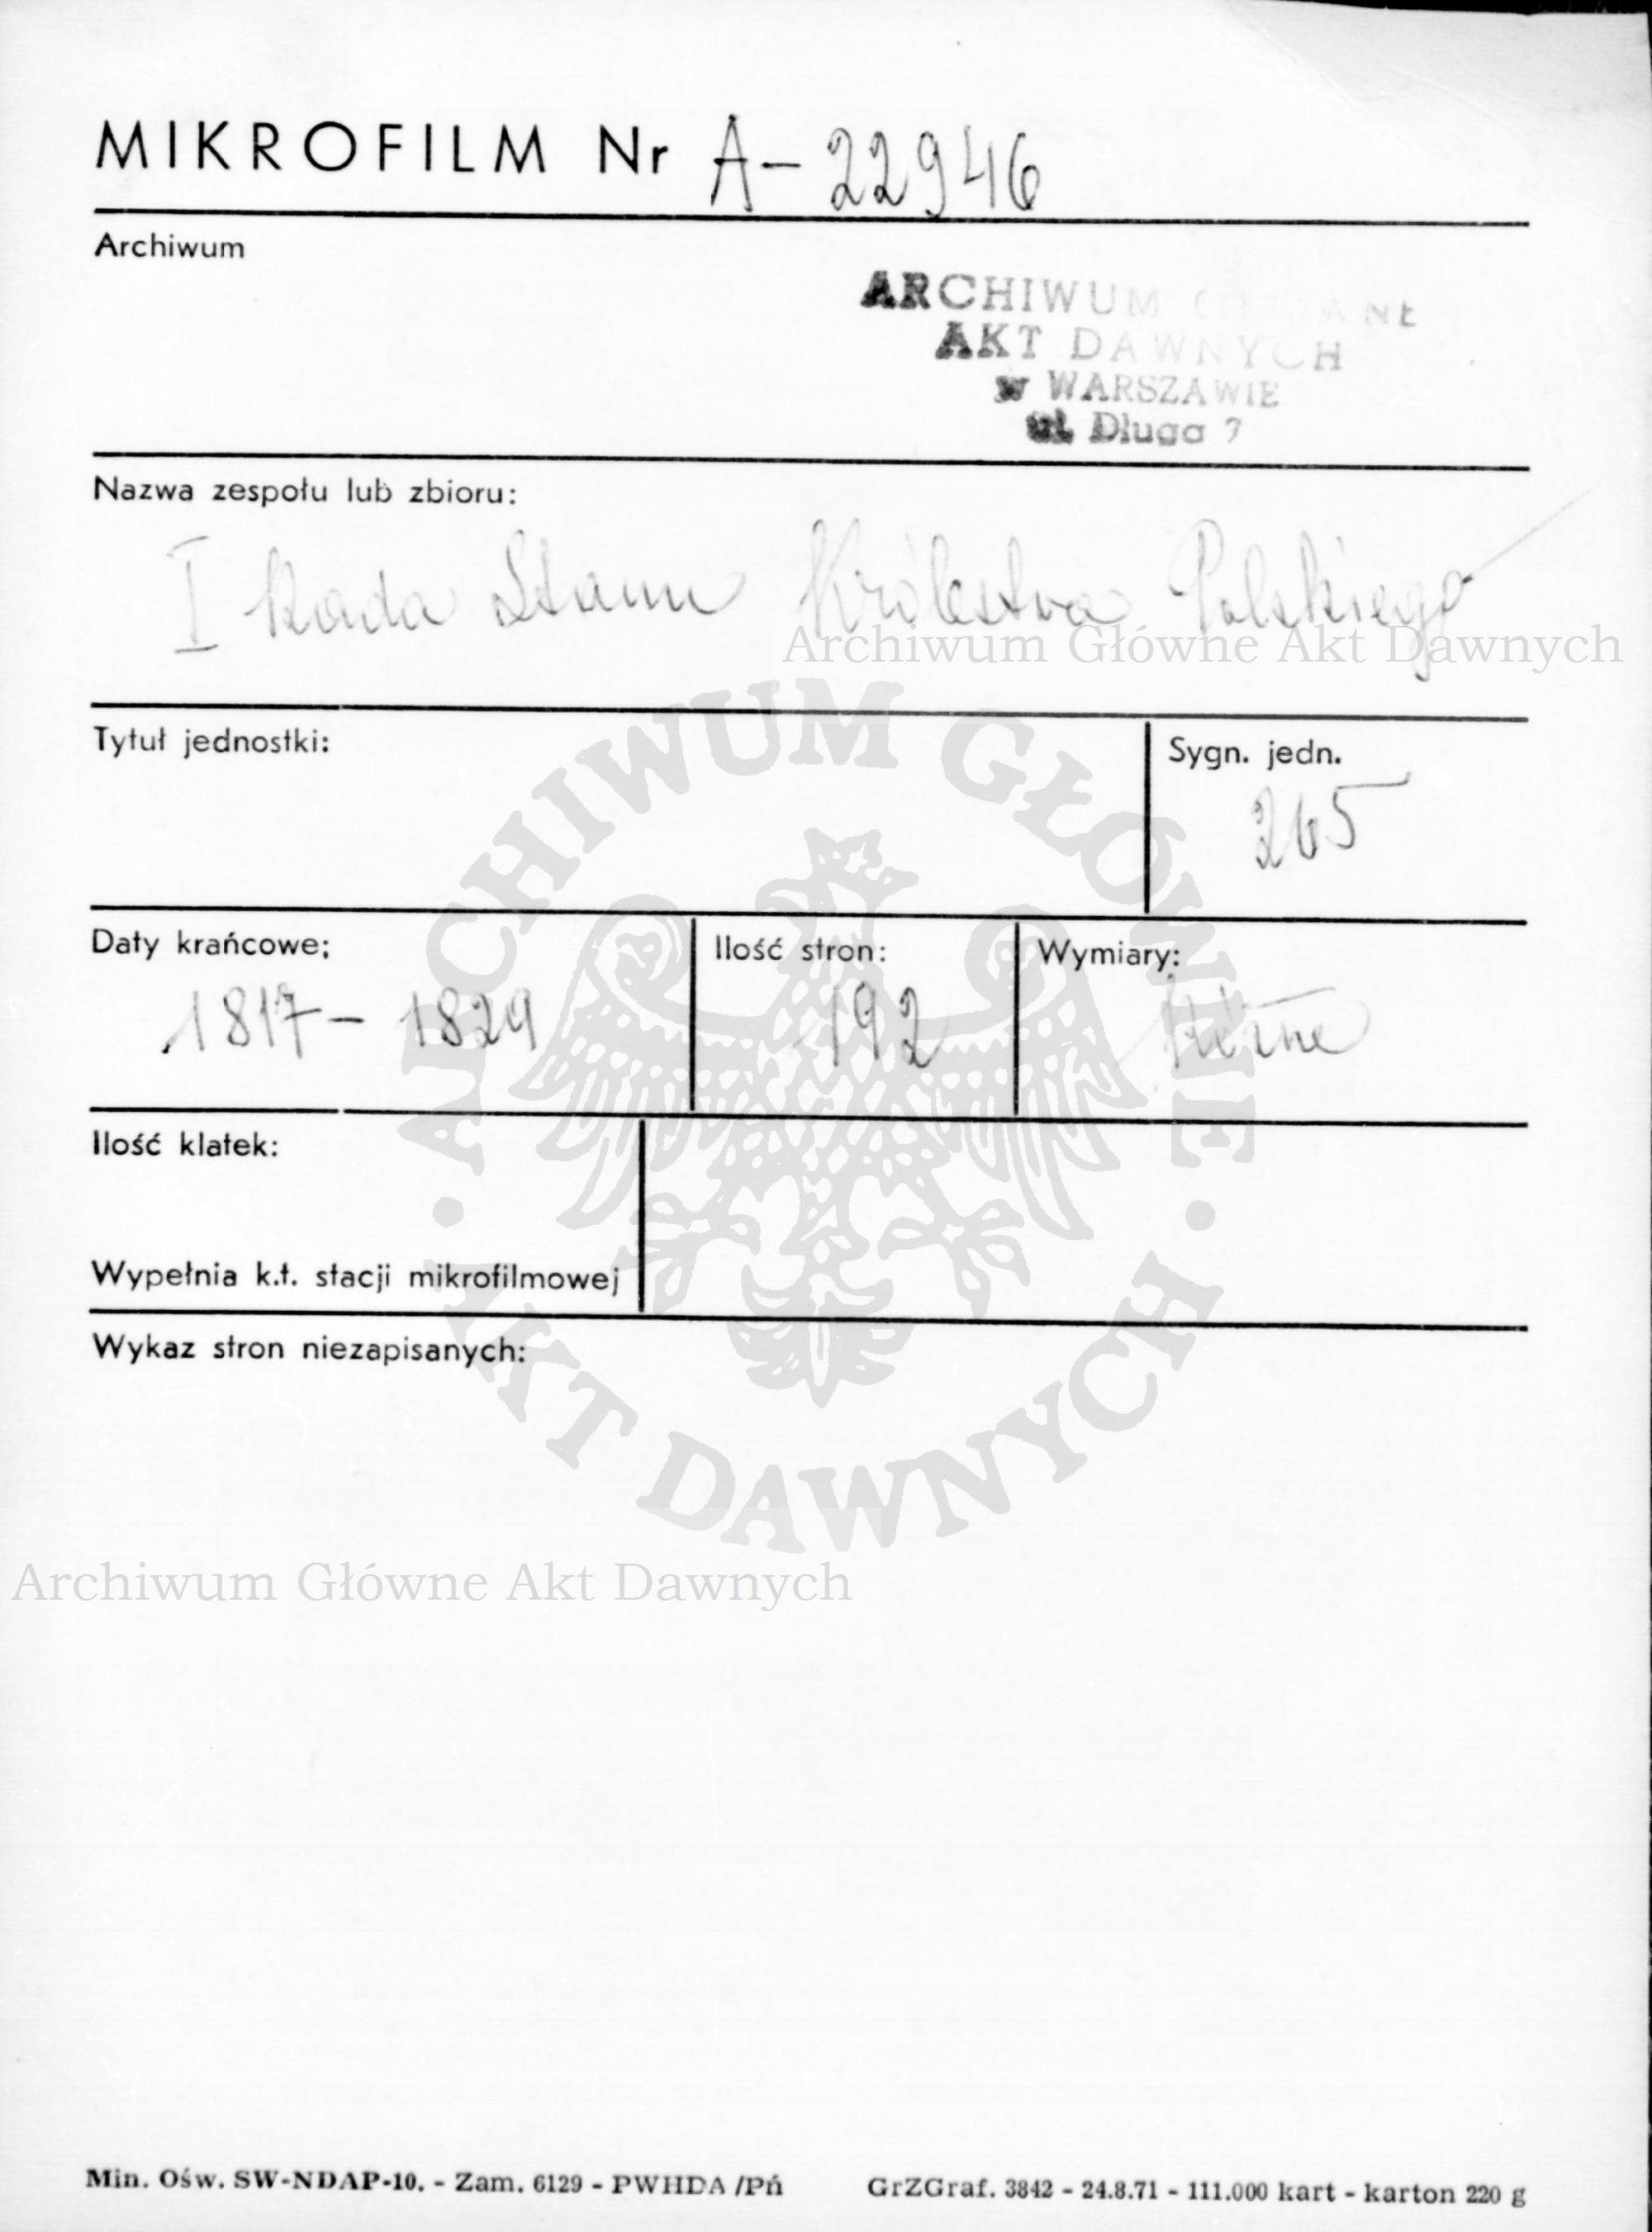 MIKROFILM Nr A-22946
Archiwum
ARCHIWUM GŁÓWNE
AKT DAWNYCH
w WARSZAWIE
ul. Długa 7
Nazwa zespołu lub zbioru:
I Rada Stanu Królestwa Polskiego
Archiwum Główne Akt Dawnych
Tytuł jednostki:
Sygn. jedn.
265
Daty krańcowe:
1817 - 1829
Ilość stron:
192
Wymiary:
Różne
Ilość klatek:
Wypełnia k.t. stacji mikrofilmowej
Wykaz stron niezapisanych:
ARCHIWUM GŁÓWNE • AKT DAWNYCH •
Archiwum Główne Akt Dawnych
Min. Ośw. SW-NDAP-10. - Zam. 6129 - PWHDA /Pń GrZGraf. 3842 - 24.8.71 - 111.000 kart - karton 220 g